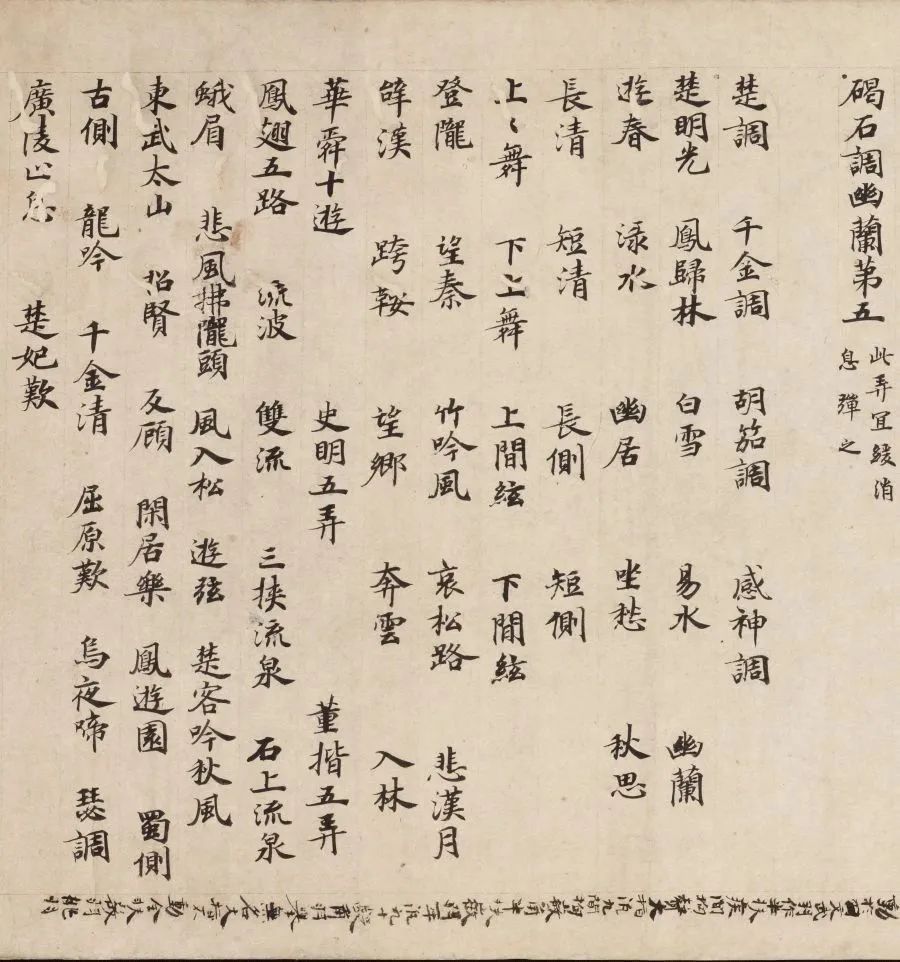 碣石調幽蘭第五 此弄宜緩消
息彈之
楚調 千金調 胡笳調 感神調
楚明光 鳳歸林 白雪 易水 幽蘭
遊春 淥水 幽居 坐愁 秋思
長清 短清 長側 短側
上〻舞 下上舞 上間絃 下間絃
登隴 望秦 竹吟風 哀松路 悲漢月
辭漢 跨鞍 望鄉 奔雲 入林
華舜十遊 史明五弄 董揩五弄
鳳翅五路 流波 雙流 三挾流泉 石上流泉
蛾眉 悲風拂隴頭 風入松 遊弦 楚客吟秋風
東武太山 招賢 反顧 閑居樂 鳳遊園 蜀側
古側 龍吟 千金清 屈原歎 烏夜啼 瑟調
廣陵止息 楚妃歎